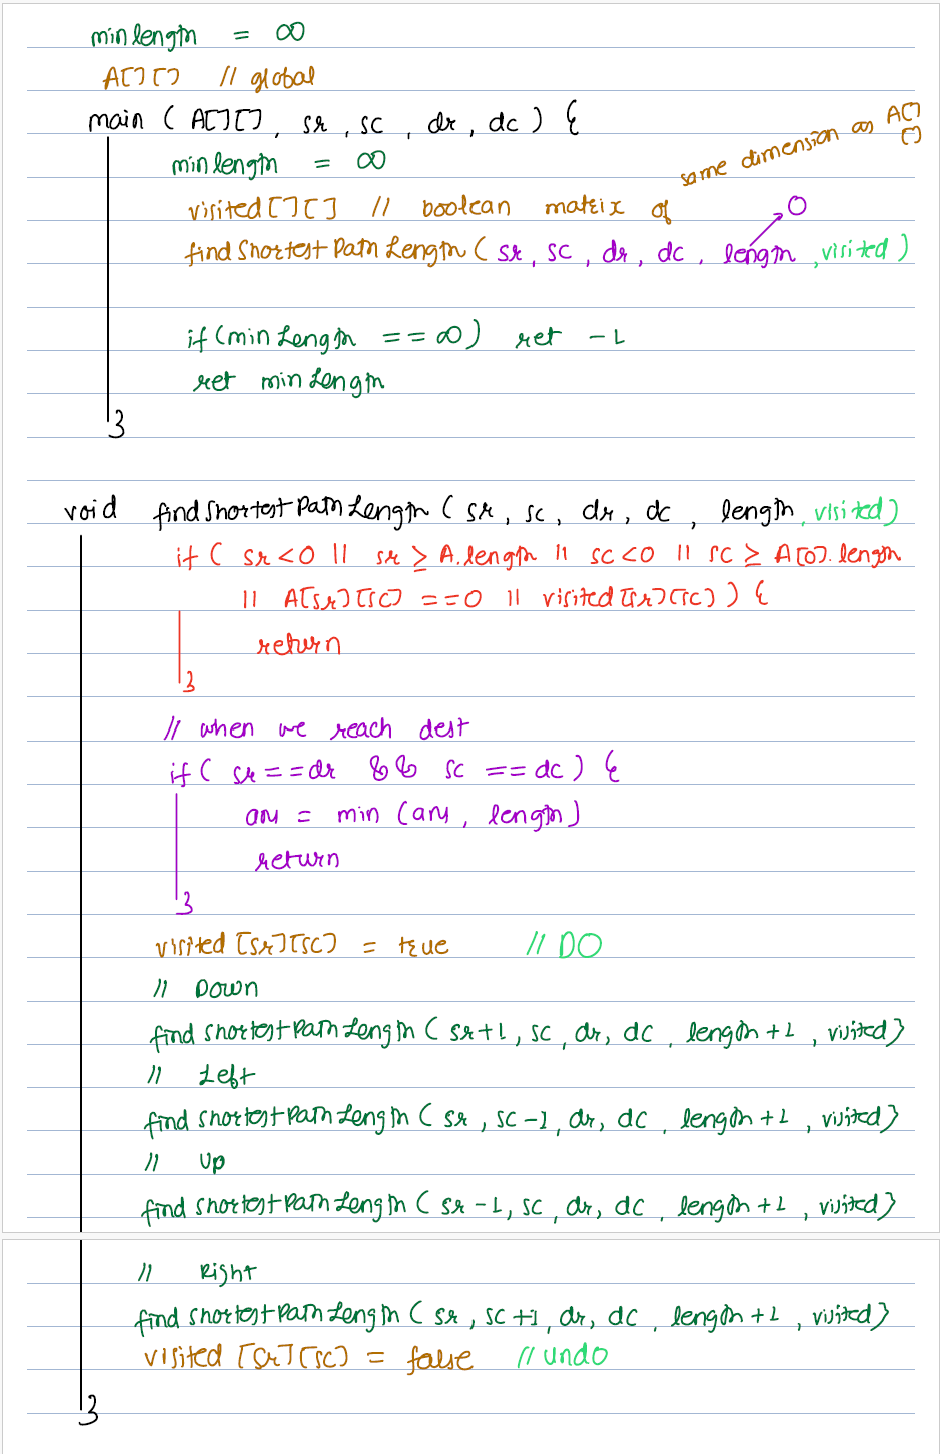 minlength = ∞
A[][] // global
main ( A[][], sr, sc, dr, dc ) {
minlength = ∞
same dimension as A[][]
visited[][] // boolean matrix of
0
findShortestPathLength ( sr, sc, dr, dc, length, visited )
if (minLength == ∞) ret -1
ret minLength
}
void findShortestPathLength ( sr, sc, dr, dc, length, visited )
if ( sr<0 || sr ≥ A.length || sc<0 || sc ≥ A[0].length
|| A[sr][sc] ==0 || visited[sr][sc] ) {
return
}
// when we reach dest
if ( sr==dr && sc ==dc ) {
ans = min (ans, length)
return
}
visited [sr][sc] = true // DO
// Down
findShortestPathLength ( sr+1, sc, dr, dc, length+1, visited )
// Left
findShortestPathLength ( sr, sc-1, dr, dc, length+1, visited )
// Up
findShortestPathLength ( sr-1, sc, dr, dc, length+1, visited )
// Right
findShortestPathLength ( sr, sc+1, dr, dc, length+1, visited )
visited [sr][sc] = false // undo
}